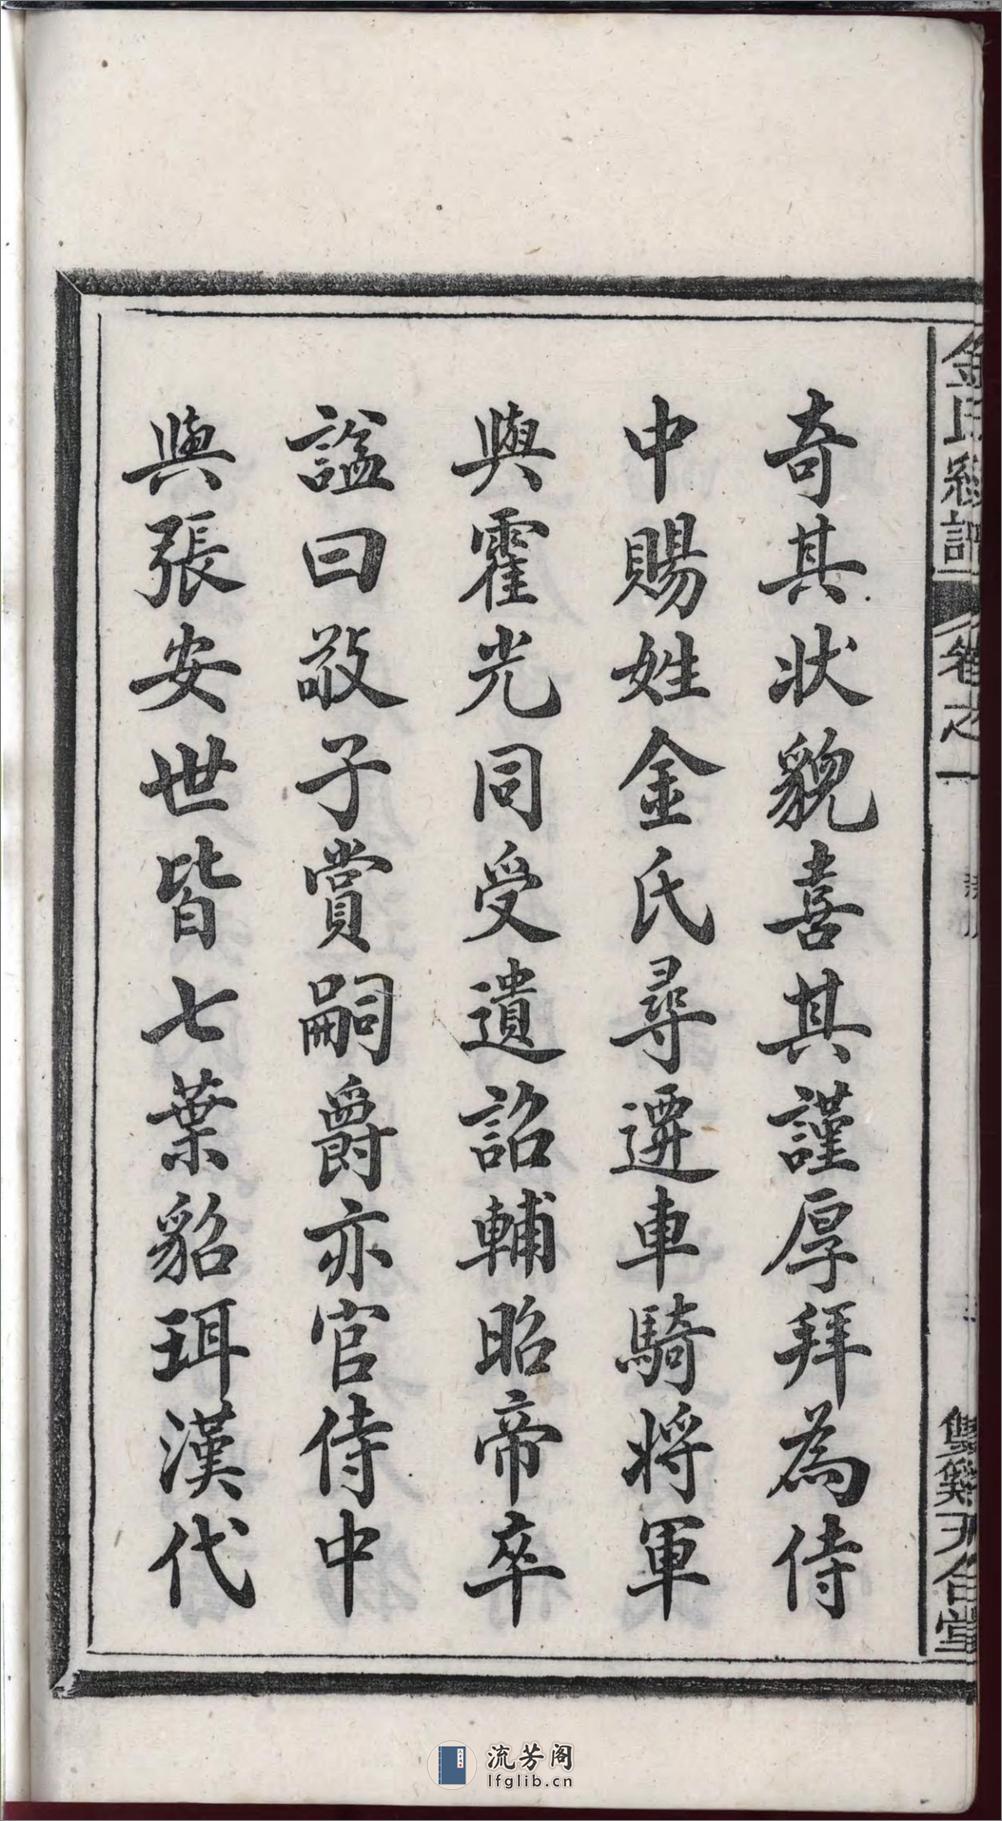 金氏總譜 卷之一
奇其狀貌喜其謹厚拜為侍
中賜姓金氏尋遷車騎將軍
與霍光同受遺詔輔昭帝卒
諡曰敬子賞嗣爵亦官侍中
與張安世皆七葉貂珥漢代
流芳阁
lfglib.cn